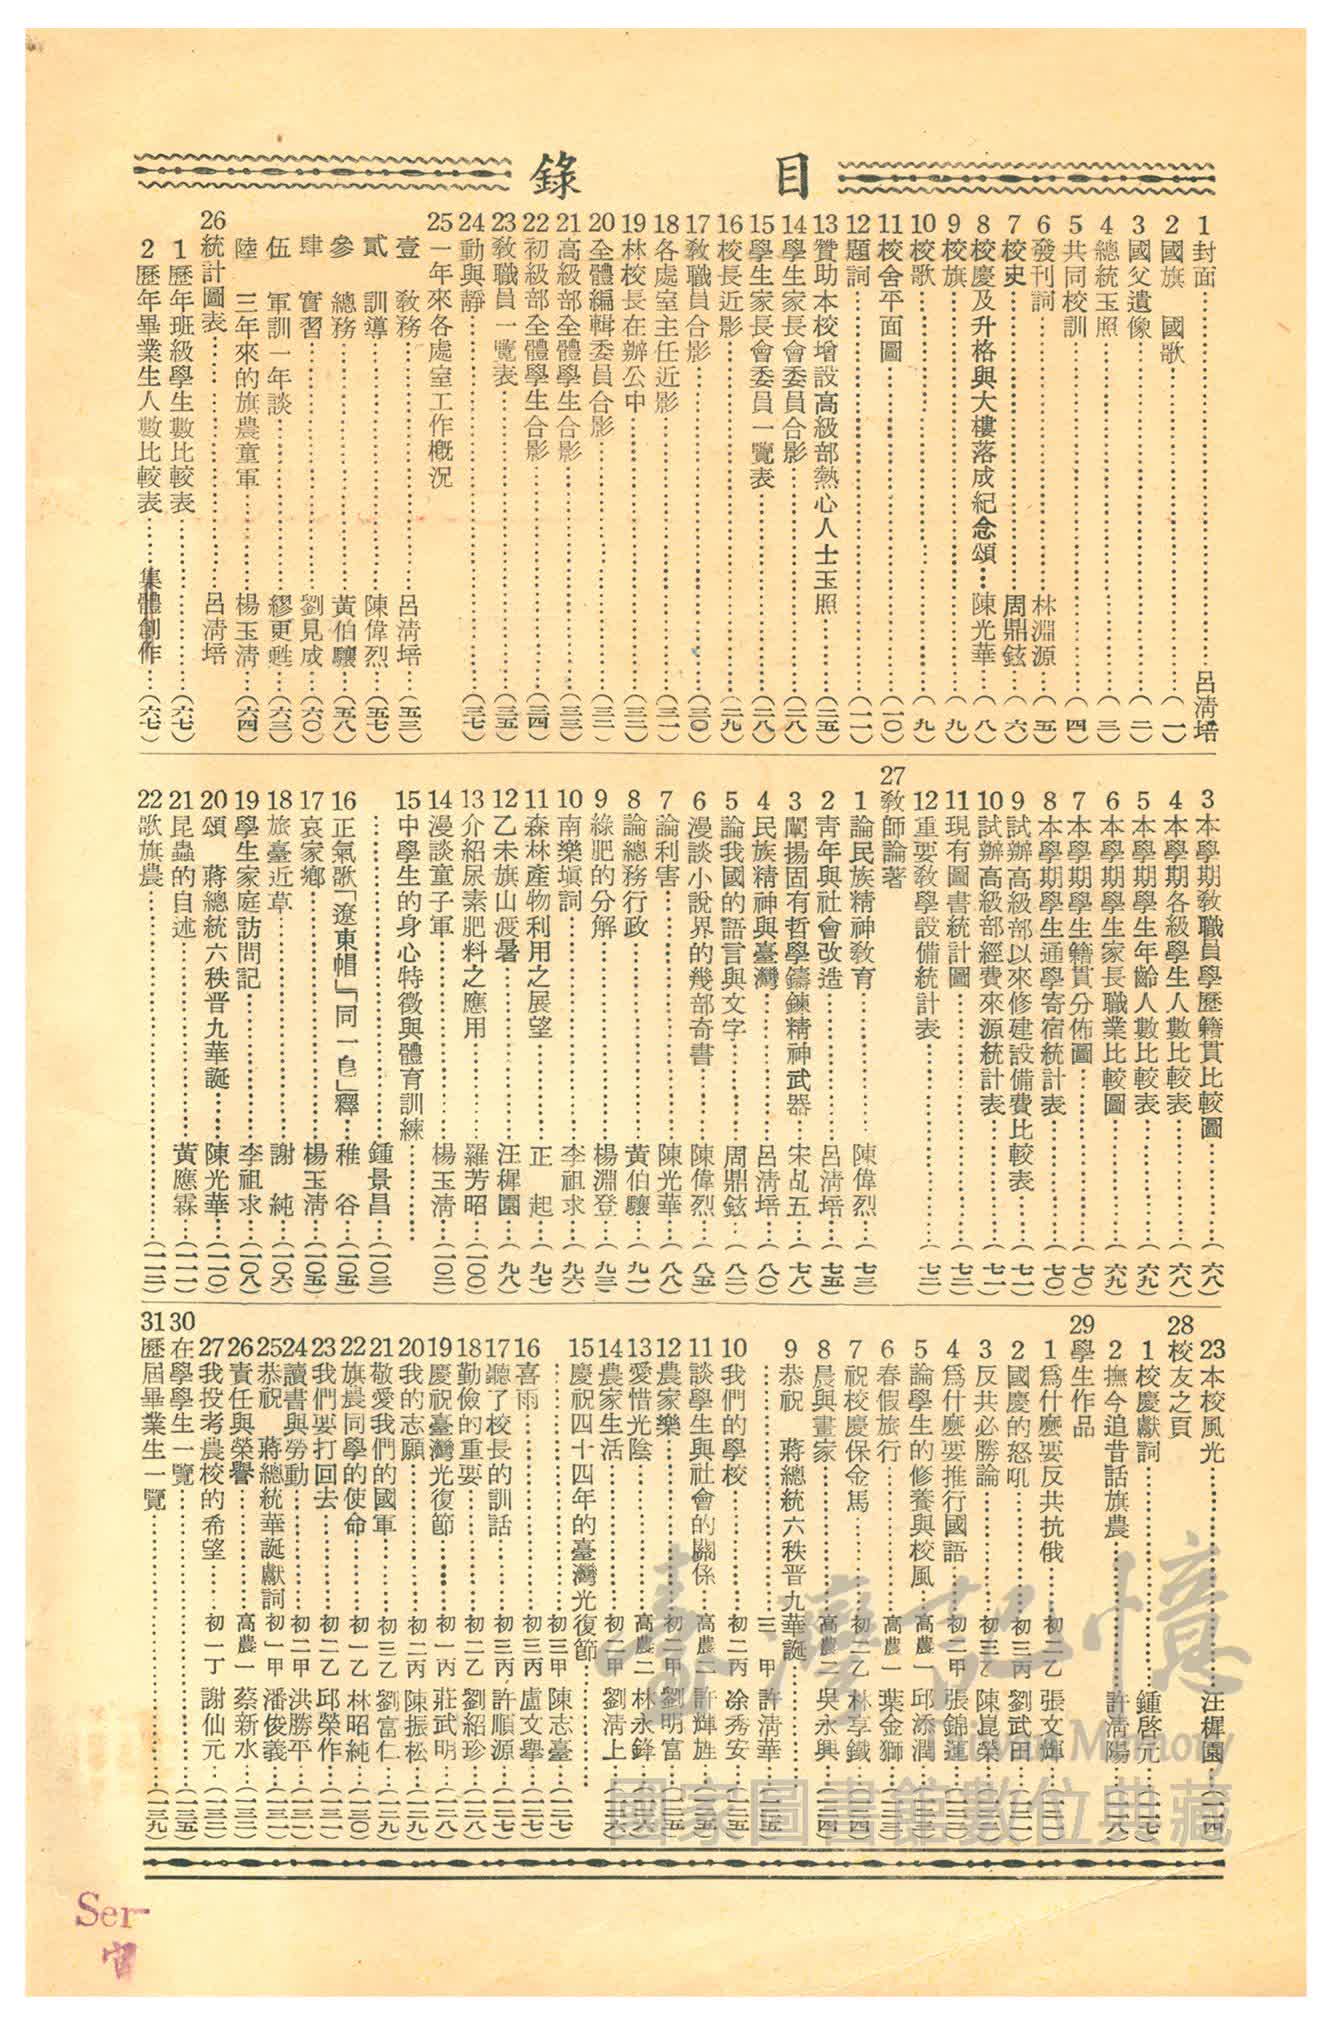 目錄
1 封面……呂淸培
2 國旗 國歌……（一）
3 國父遺像……（二）
4 總統玉照……（三）
5 共同校訓……（四）
6 發刊詞……林淵源……（五）
7 校史……周鼎鉉……（六）
8 校慶及升格與大樓落成紀念頌……陳光華……（八）
9 校旗……（九）
10 校歌……（九）
11 校舍平面圖……（一〇）
12 題詞……（一一）
13 贊助本校增設高級部熱心人士玉照……（二五）
14 學生家長會委員合影……（二八）
15 學生家長會委員一覽表……（二八）
16 校長近影……（二九）
17 敎職員合影……（三〇）
18 各處室主任近影……（三一）
19 林校長在辦公中……（三二）
20 全體編輯委員合影……（三二）
21 高級部全體學生合影……（三三）
22 初級部全體學生合影……（三四）
23 敎職員一覽表……（三五）
24 動與靜……（三七）
25 一年來各處室工作槪況
壹 敎務……呂淸培……（五三）
貳 訓導……陳偉烈……（五七）
參 總務……黃伯驤……（五八）
肆 實習……劉見成……（六〇）
伍 軍訓一年談……繆更甦……（六三）
陸 三年來的旗農童軍……楊玉淸……（六四）
26 統計圖表……呂淸培
1 歷年班級學生數比較表……（六七）
2 歷年畢業生人數比較表……集體創作……（六七）
3 本學期敎職員學歷籍貫比較圖……（六八）
4 本學期各級學生人數比較表……（六八）
5 本學期學生年齡人數比較表……（六九）
6 本學期學生家長職業比較圖……（六九）
7 本學期學生籍貫分佈圖……（七〇）
8 本學期學生通學寄宿統計表……（七〇）
9 試辦高級部以來修建設備費比較表……（七一）
10 試辦高級部經費來源統計表……（七一）
11 現有圖書統計圖……（七二）
12 重要敎學設備統計表……（七二）
27 敎師論著
1 論民族精神敎育……陳偉烈……（七三）
2 靑年與社會改造……呂淸培……（七五）
3 闡揚固有哲學鑄鍊精神武器……宋乩五……（七八）
4 民族精神與臺灣……呂淸培……（八〇）
5 論我國的語言與文字……周鼎鉉……（八二）
6 漫談小說界的幾部奇書……陳偉烈……（八五）
7 論利害……陳光華……（八八）
8 論總務行政……黃伯驤……（九一）
9 綠肥的分解……楊淵登……（九三）
10 南樂塡詞……李祖求……（九六）
11 森林產物利用之展望……正 起……（九七）
12 乙未旗山渡暑……汪樨園……（九八）
13 介紹尿素肥料之應用……羅芳昭……（一〇〇）
14 漫談童子軍……楊玉淸……（一〇二）
15 中學生的身心特徵與體育訓練……
……鍾景昌……（一〇三）
16 正氣歌「遼東帽」「同一皀」釋……稚 谷……（一〇五）
17 哀家鄉……楊玉淸……（一〇五）
18 旅臺近草……謝 純……（一〇六）
19 學生家庭訪問記……李祖求……（一〇八）
20 頌 蔣總統六秩晋九華誕……陳光華……（一一〇）
21 昆蟲的自述……黃應霖……（一一一）
22 歌旗農……（一一三）
23 本校風光……汪樨園……（一一四）
28 校友之頁
1 校慶獻詞……鍾啓元……（一一七）
2 撫今追昔話旗農……許淸陽……（一一八）
29 學生作品
1 爲什麼要反共抗俄……初二乙 張文輝
2 國慶的怒吼……初三丙 劉武田
3 反共必勝論……初三乙 陳崑榮
4 爲什麼要推行國語……初二甲 張錦蓮
5 論學生的修養與校風……高農一 邱添潤
6 春假旅行……高農一 葉金獅
7 祝校慶保金馬……初二乙 林享鐵……（一二四）
8 晨與畫家……高農二 吳永興……（一二四）
9 恭祝 蔣總統六秩晋九華誕……
……三 甲 許淸華……（一二五）
10 我們的學校……初二丙 凃秀安……（一二五）
11 談學生與社會的關係……高農二 許輝旌……（一二五）
12 農家樂……初二甲 劉明富……（一二五）
13 愛惜光陰……高農二 林永鋒……（一二六）
14 農家生活……初二甲 劉淸上……（一二六）
15 慶祝四十四年的臺灣光復節……
……初三甲 陳志臺……（一二七）
16 喜雨……初三丙 盧文擧……（一二七）
17 聽了校長的訓話……初三丙 許順源……（一二七）
18 勤儉的重要……初二乙 劉紹珍……（一二八）
19 慶祝臺灣光復節……初一丙 莊武明……（一二八）
20 我的志願……初二丙 陳振松……（一二九）
21 敬愛我們的國軍……初三乙 劉富仁……（一二九）
22 旗農同學的使命……初一乙 林昭純……（一三〇）
23 我們要打回去……初二乙 邱榮作……（一三一）
24 讀書與勞動……初二甲 洪勝平……（一三一）
25 恭祝 蔣總統華誕獻詞……初一甲 潘俊義……（一三二）
26 責任與榮譽……高農一 蔡新水……（一三二）
27 我投考農校的希望……初一丁 謝仙元……（一三三）
30 在學學生一覽……（一三五）
31 歷屆畢業生一覽……（一三九）
臺灣記憶
Taiwan Memory
國家圖書館數位典藏
Ser-